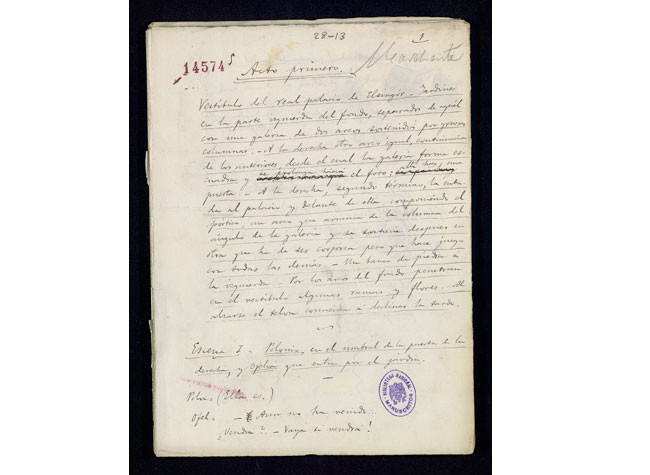 28-13
1
14574
Acto primero.
Vestíbulo del real palacio de Elsingor. - Jardines
en la parte izquierda del fondo, separados de aquél
con una galería de dos arcos sostenidos por gruesas
columnas. - A la derecha otro arco igual, continuación
de los anteriores, desde el cual la galería forma es-
cuadra y se prolonga hacia el foro; allí hay una
puerta. - A la derecha, segundo término, la entra-
da al palacio y delante de ella, componiendo el
pórtico, un arco que arranca de la columna del
ángulo de la galería y se sostiene después en
otra que ha de ser corpórea pero que hace juego
con todas las demás. - Un banco de piedra a
la izquierda. - Por los arcos del fondo penetran
en el vestíbulo algunas ramas y flores. - Al
alzarse el telón comienza a declinar la tarde.
Escena I. Polonio, en el umbral de la puerta de la
derecha, y Ofelia que entra por el jardín.
Polo. (Ella es.)
Ofel. - Aun no ha venido...
¿Vendrá? - Vaya si vendrá!
BIBLIOTECA NACIONAL
MANUSCRITOS